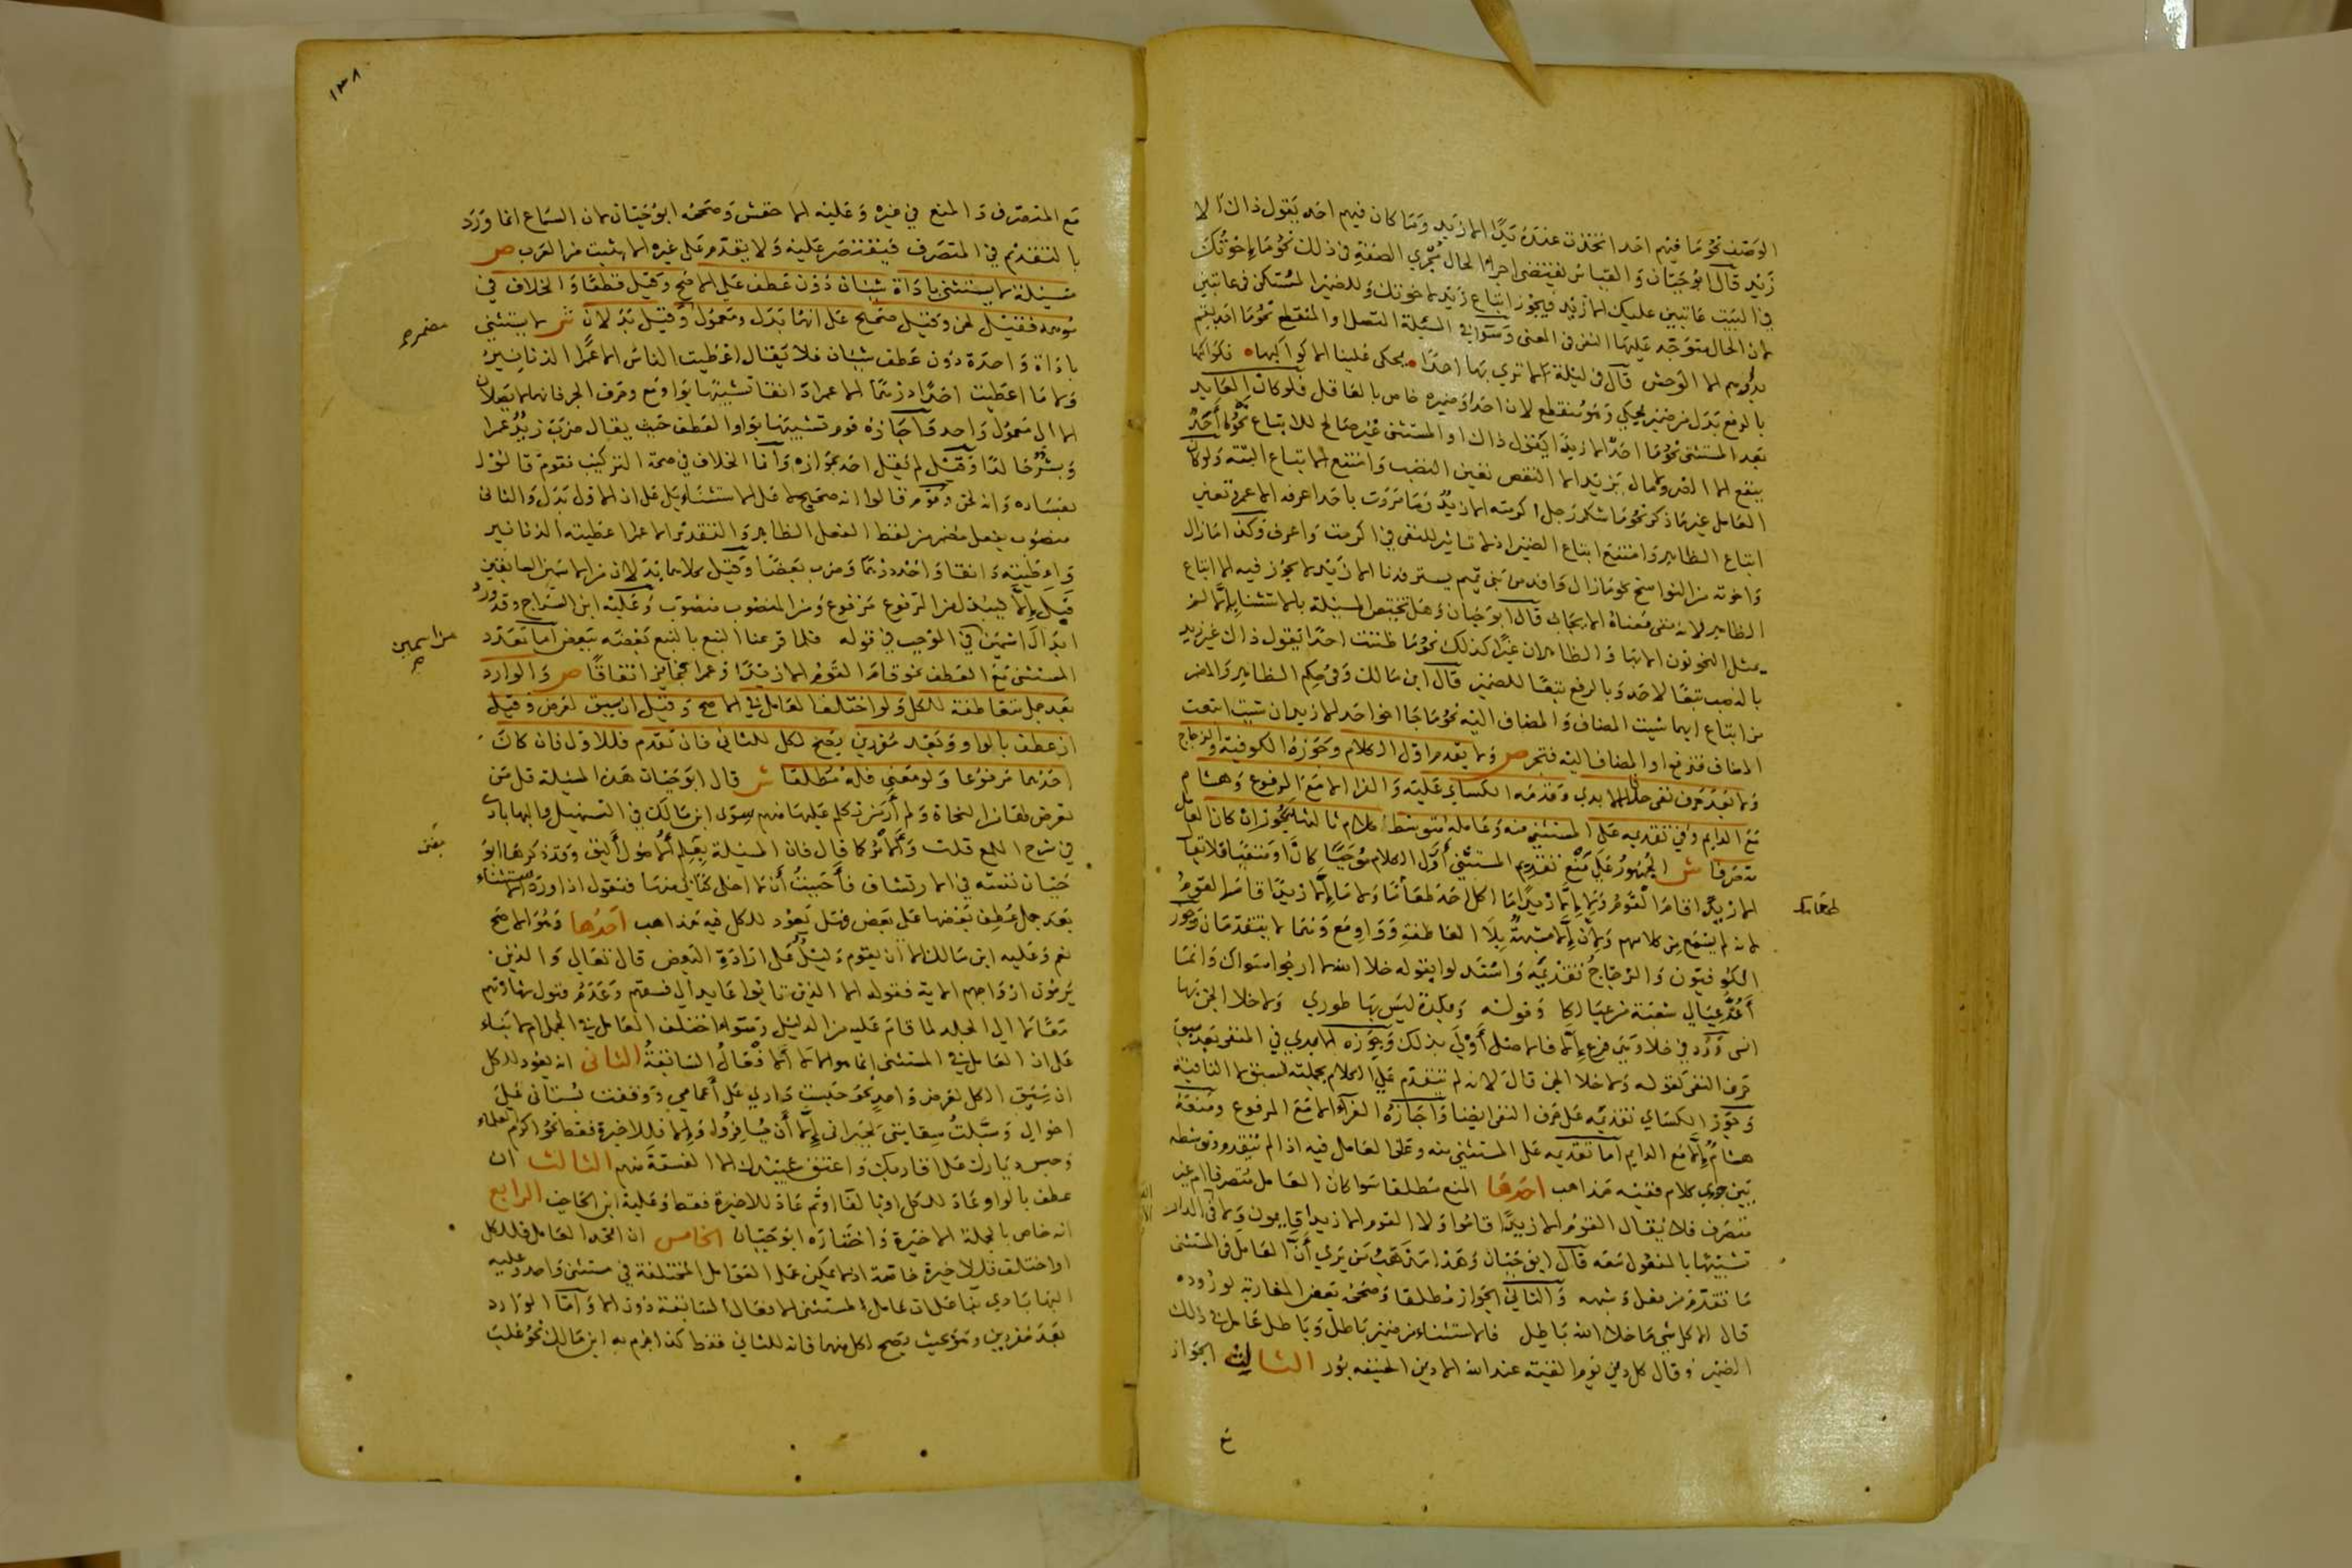 الوصف نحو ما فيهم احد اتخذت عنده يدا الا زيد وما كان فيهم احد يقول ذاك الا
زيد قال ابو حيان والقياس يقتضى اجراء الحال مجرى الصفة فى ذلك نحو ما اخوتك
فى البيت عاتبين عليك الا زيد فيجوز اتباع زيد لاخوتك وللضمير المستكن فى عاتبين
لان الحال متوجه عليها النفى فى المعنى وسواء فى المسئلة المتصل والمنقطع نحو ما احد يقيم
بدارهم الا الوحش قال فى ليلة لا نرى بها احدا يحكى علينا الا كواكبها فكواكبها
بالرفع بدل من ضمير يحكى وهو منقطع لان احدا وضميره خاص بالعاقل فلو كان العايد
بعد المستثنى نحو ما احد الا زيدا يقول ذاك او المستثنى غير صالح للاتباع نحو ما احد
ينفع الا الضر ولا مال يزيد الا النقص تعين النصب وامتنع الاتباع البتة ولو كان
العامل غير ما ذكر نحو ما شكر رجل اكرمته الا زيد وما مررت باحد اعرفه الا عمرو تعين
اتباع الظاهر وامتنع اتباع الضمير اذ لا تاثير للنفى فى اكرمت واعرف وكذا ما زال
واخوته من النواسخ نحو ما زال وافد من بنى تميم يسترفدنا الا زيد لا يجوز فيه الا اتباع
الظاهر لانه نفى معناه الايجاب قال ابو حيان وهل تختص المسئلة بالاستثناء بالا لم
يمثل النحويون الا بها والظاهر ان غيرا كذلك نحو ما ظننت احدا يقول ذاك غير زيد
بالنصب تبعا لاحد وبالرفع تبعا للضمير قال ابن مالك وفى حكم الظاهر والمضمر
من اتباع ايهما شئت المضاف والمضاف اليه نحو ما جا اخو احد الا زيد ان شئت اتبعت
المضاف فترفع او المضاف اليه فتجر ص ولا يقدم اول الكلام وجوزه الكوفية والزجاج
ولا بعد حرف نفى خلافا للابدى وقدمه الكساى عليه والفرا الا مع المرفوع وهشام
مع الدايم وفى تقديمه على المستثنى منه وعامله متوسطا كلام ثالثها يجوز ان كان العامل
متصرفا ش الجمهور على منع تقديم المستثنى اول الكلام موجبا كان او منفيا فلا يقال
الا زيدا قام القوم ولا الا زيدا ما اكل احد طعاما ولا ما الا زيدا قام القوم
لانه لم يسمع من كلامهم ولان الا مشبهة بلا العاطفة وواو مع وهما لا يتقدمان وجوز
الكوفيون والزجاج تقديمه واستدلوا بقوله خلا الله لا ارجو سواك وانما
اعد عيالى شعبة من عيالكا وقوله وبلدة ليس بها طورى ولا خلا الجن بها
انسى ورد فى خلا وهى فرع الا فالاصل اولى بذلك وجوزه الابدى فى المنفى بعد سبق
حرف النفى كقوله ولا خلا الجن قال لانه لم يتقدم على الكلام بجملته لسبق لا النافية
وجوز الكساى تقديمه على حرف النفى ايضا واجازه الفراء الا مع المرفوع ومنعه
هشام الا مع الدايم اما تقديمه على المستثنى منه وعلى العامل فيه اذا لم يتقدم وتوسط
بين جزى كلام ففيه مذاهب احدها المنع مطلقا سوا كان العامل متصرفا ام غير
متصرف فلا يقال القوم الا زيدا قاموا ولا القوم الا زيدا قايمون ولا فى الدار
تشبيها بالمفعول معه قال ابو حيان وهذا مذهب من يرى ان العامل فى المستثنى
ما تقدم من فعل وشبهه والثانى الجواز مطلقا وصححه بعض المغاربة لوروده
قال الا كل شى ما خلا الله باطل فالاستثناء من ضمير باطل وباطل عامل فى ذلك
الضمير وقال كل دين يوم القيمة عند الله الا دين الحنيفه بور الثالث الجواز
طعامك
١٣٨
مع المتصرف والمنع فى غيره وعليه الاخفش وصححه ابو حيان لان السماع انما ورد
بالتقديم فى المتصرف فيقتصر عليه ولا يقدم على غيره الا بثبت من العرب ص
مسئلة لا يستثنى باداة شيئان دون عطف على الاصح وقيل قطعا والخلاف فى
موهمه فقيل لحن وقيل صحيح على انهما بدل ومعمول وقيل بدلان ش لا يستثنى
باداة واحدة دون عطف شيئان فلا يقال اعطيت الناس الا عمرا الدنانير
ولا ما اعطيت احدا درهما الا عمرا دانقا تشبيها بواو مع وحرف الجر فانهما لا يصلان
الا الى معمول واحد واجازه قوم تشبيها بواو العطف حيث يقال ضرب زيد عمرا
وبشر خالدا وقيل لم يقل احد بجوازه وانما الخلاف فى صحة التركيب فقوم قالوا
بفساده وانه لحن وقوم قالوا انه صحيح لا على الاستثناء بل على ان الاول بدل والثانى
منصوب بفعل مضمر من لفظ الفعل الظاهر والتقدير الا عمرا اعطيته الدنانير
واعطيته دانقا واخذ درهما وضرب بعضا وقيل كلاهما بدلان من الاسمين السابقين
قبل الا فيبدل من المرفوع مرفوع ومن المنصوب منصوب وعليه ابن السراج وقد ورد
ابدال اسمين فى الموجب فى قوله فلما قرعنا النبع بالنبع بعضه ببعض اما تعدد
المستثنى مع العطف نحو قام القوم الا زيدا وعمرا فجايز اتفاقا ص والوارد
بعد جمل متعاطفة للكل ولو اختلف العامل فى الاصح وقيل ان سيق لغرض وقيل
ان عطف بالواو وبعد مفردين يصح لكل للثانى فان تقدم فللاول فان كان
احدهما مرفوعا ولو معنى فله مطلقا ش قال ابو حيان هذه المسئلة قل من
تعرض لها من النحاة ولم ار من تكلم عليها منهم سوى ابن مالك فى التسهيل والبهاباذى
فى شرح اللمع قلت والامر كما قال فان المسئلة بعلم الاصول اليق وقد ذكرها ابو
حيان نفسه فى الارتشاف فاحببت ان لا اخلى كتابى منها فنقول اذا ورد الاستثناء
بعد جمل عطف بعضها على بعض فهل يعود للكل فيه مذاهب احدها وهو الاصح
نعم وعليه ابن مالك الا ان يقوم دليل على ارادة البعض قال تعالى والذين
يرمون ازواجهم الاية فقوله الا الذين تابوا عايد الى فسقهم وعدم قبول شهادتهم
معا لا الى الجلد لما قام عليه من الدليل وسواء اختلف العامل فى الجمل ام لا بناء
على ان العامل فى المستثنى انما هو الا لا الافعال السابقة الثانى انه يعود للكل
ان سيق الكل لغرض واحد نحو حبست دارى على اعمامى ووقفت بستانى على
اخوالى وسبلت سقايتى لجيرانى الا ان يسافروا والا فللاخيرة فقط نحو اكرم العلماء
وحبس ديارك على اقاربك واعتق عبيدك الا الفسقة منهم الثالث ان
عطف بالواو عاد للكل او بالفا او ثم عاد للاخيرة فقط وعليه ابن الحاجب الرابع
انه خاص بالجملة الاخيرة واختاره ابو حيان الخامس ان اتحد العامل فللكل
او اختلف فللاخيرة خاصة اذ لا يمكن عمل العوامل المختلفة فى مستثنى واحد وعليه
البهاباذى بنا على ان عامل المستثنى الافعال السابقة دون الا واما الوارد
بعد مفردين وهو بحيث يصح لكل منهما فانه للثانى فقط كذا جزم به ابن مالك نحو غلب
مضمر صح
من اسمين صح